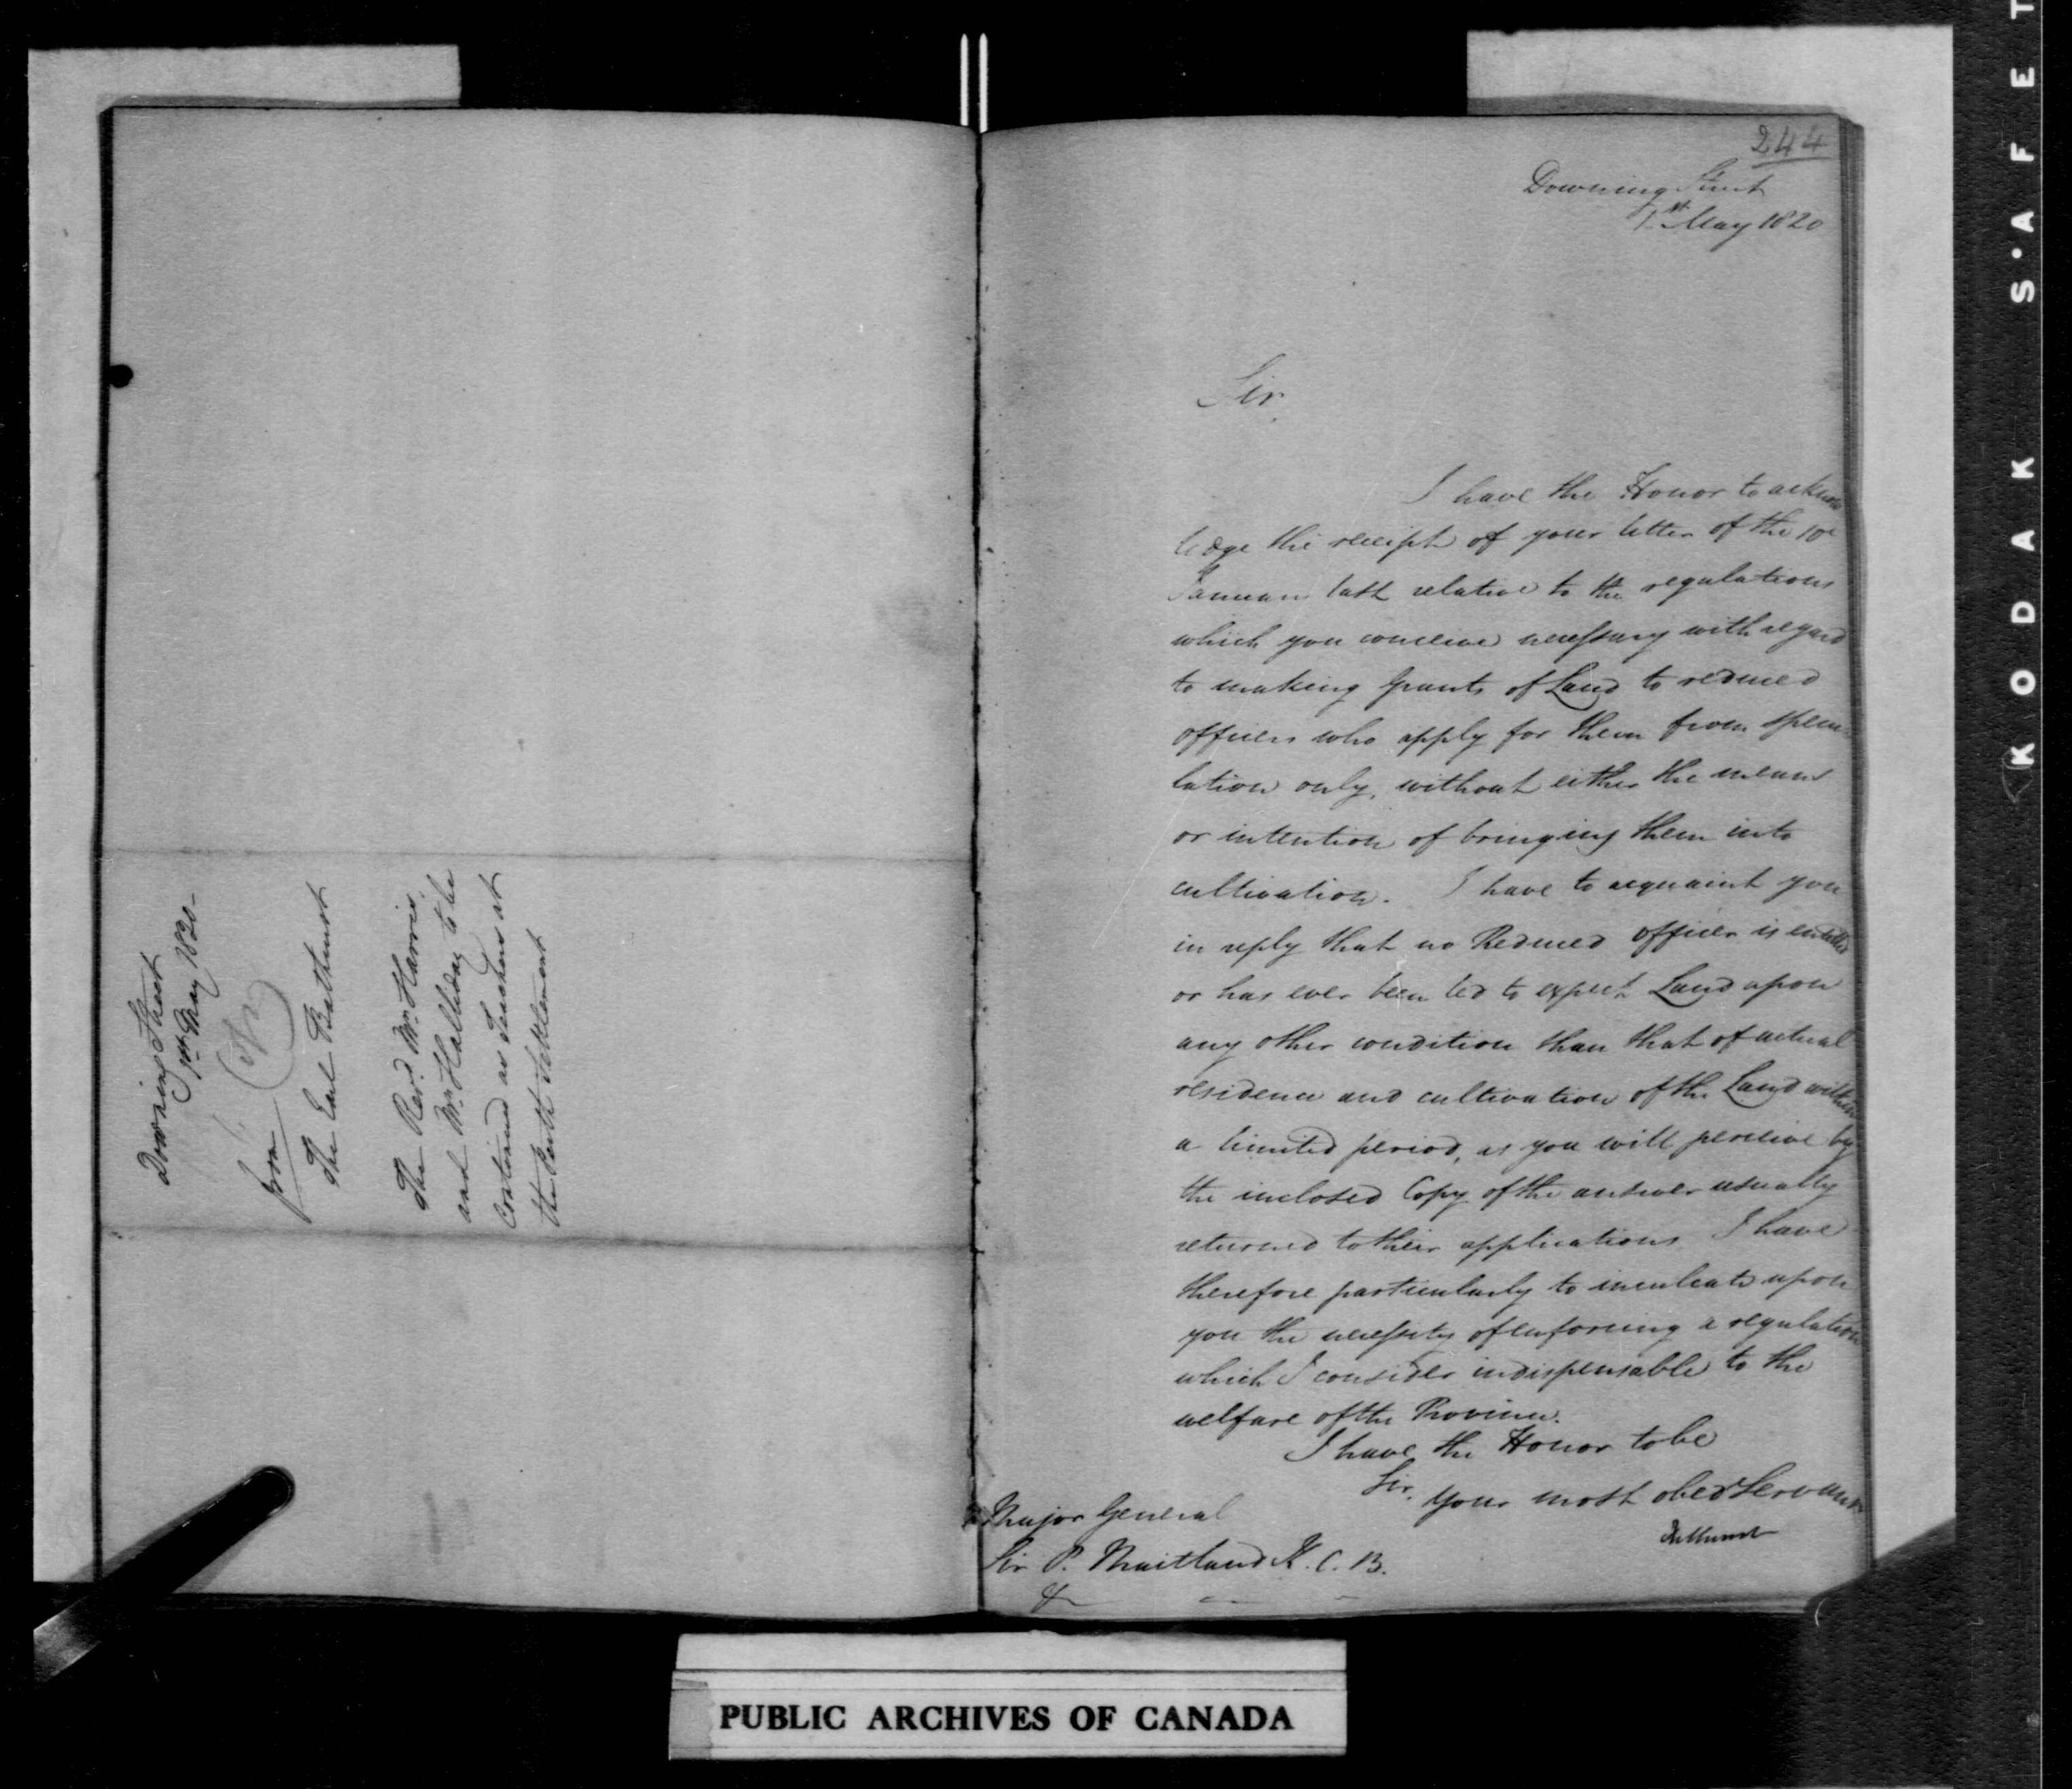 Downing Street
1st May 1820 -
from
The Earl Bathurst
The Revd. Mr. Harris
and Mr. Halliday to be
Continued as Teachers at
the Perth Settlement
244
Downing Street
1st May 1820
Sir,
I have the Honor to acknow
ledge the receipt of your letter of the
January last relative to the regulations
which you conceive necessary with regard
to making Grants of Land to reduced
officers who apply for them from specu
lation only, without either the means
or intention of bringing them into
cultivation. I have to acquaint you
in reply that no Reduced officer is entitled
or has ever been led to expect Land upon
any other condition than that of actual
residence and cultivation of the Land within
a limited period, as you will perceive by
the inclosed Copy of the answer usually
returned to their applications I have
therefore particularly to inculcate upon
you the necessity of enforcing a regulation
which I consider indispensable to the
welfare of the Province.
I have the Honor to be
Sir,
your most obedt Servant
Bathurst
Major General
Sir P. Maitland K.C.B.
&
PUBLIC ARCHIVES OF CANADA
KODAK S'AFET